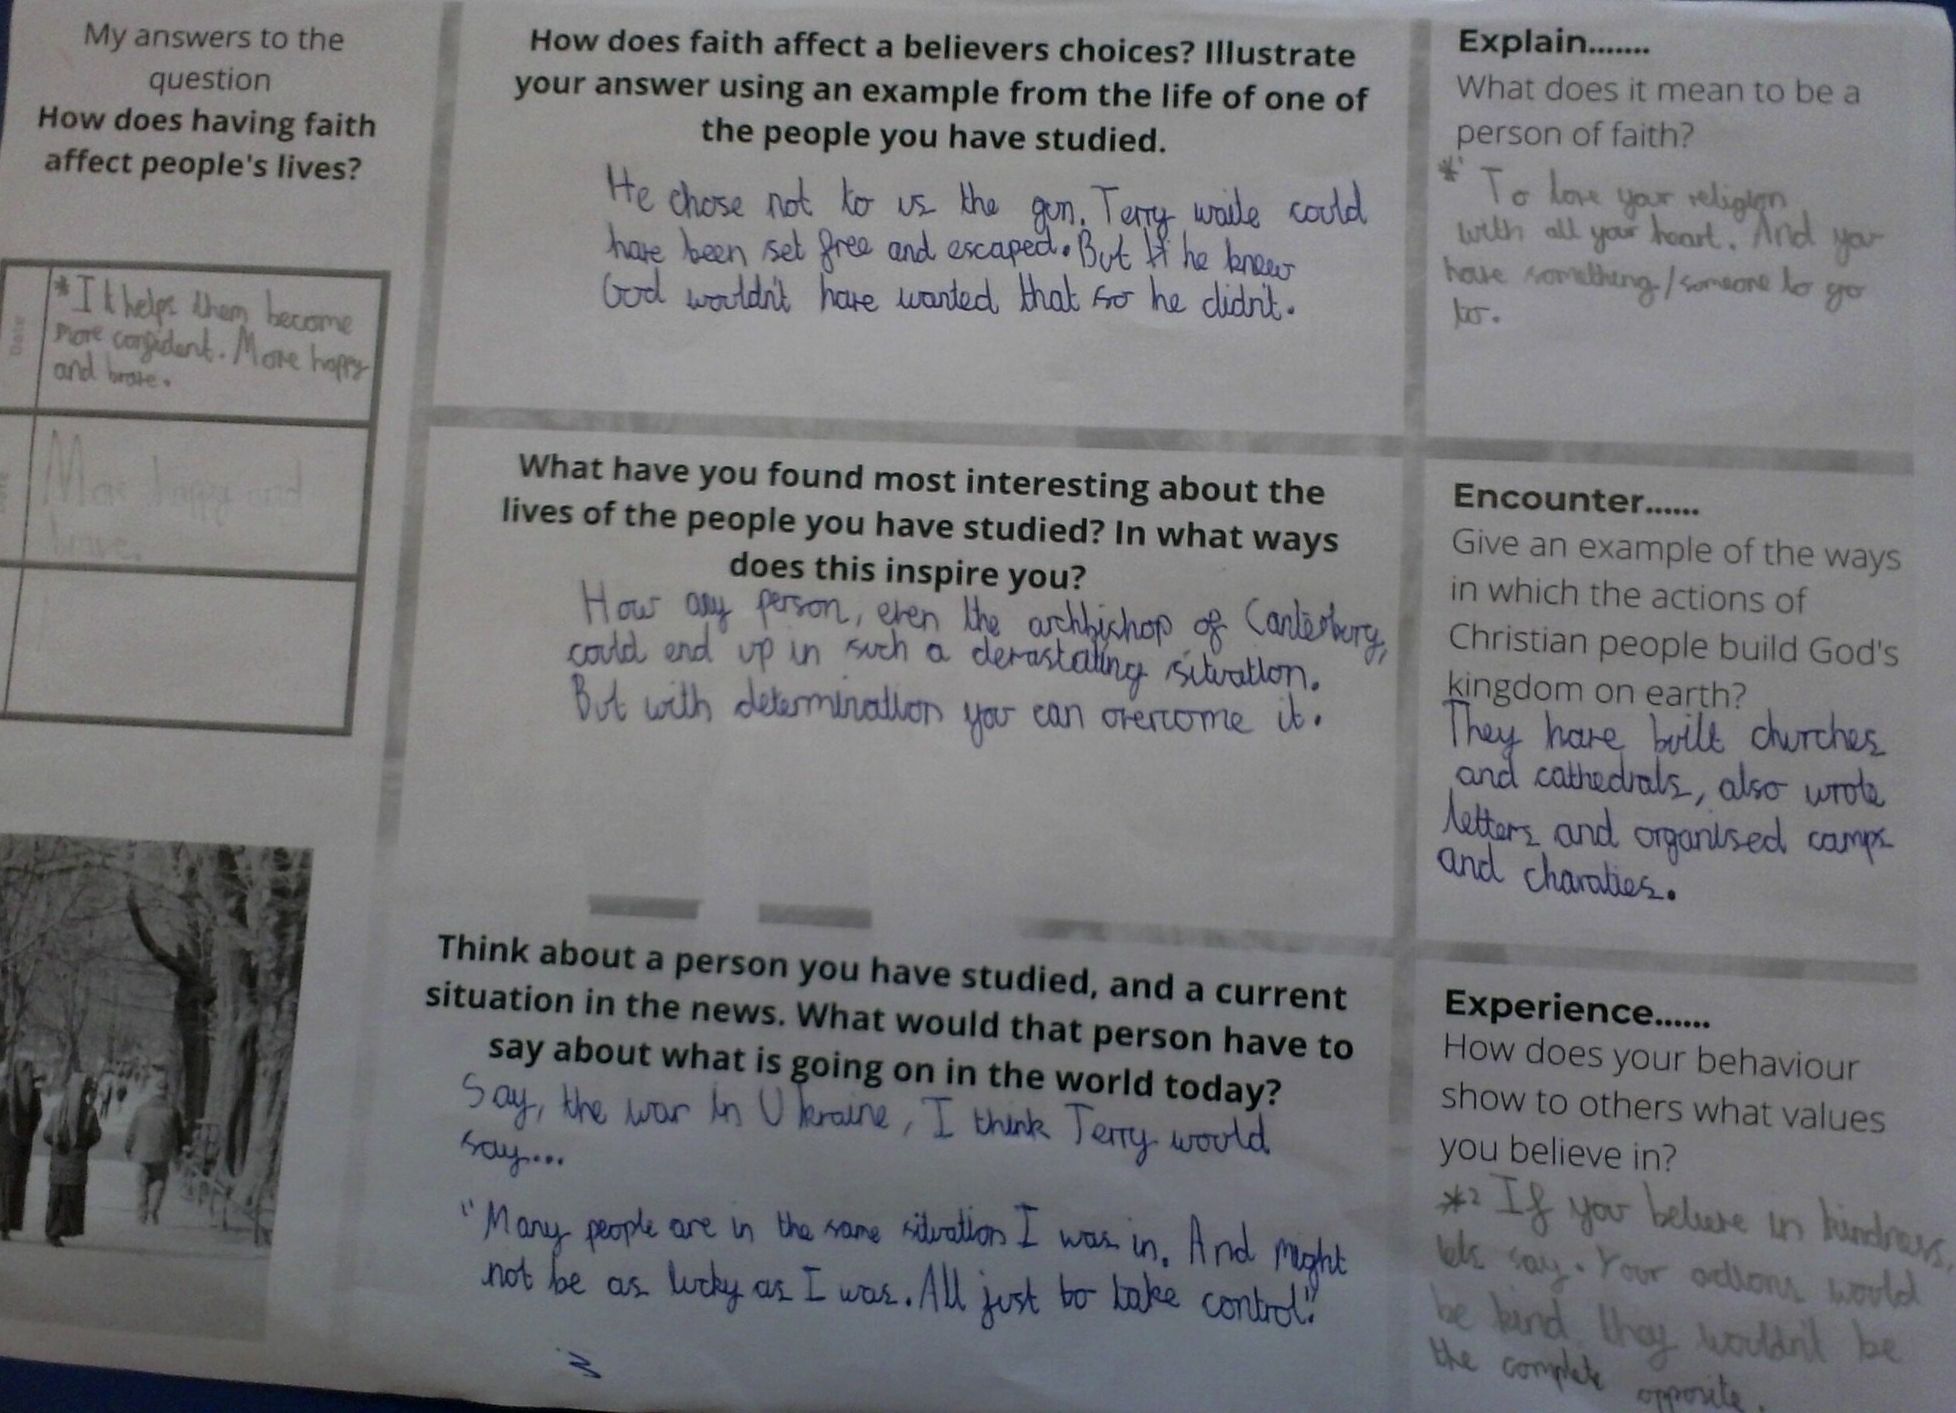 My answers to the
question
How does having faith
affect people's lives?
Date
*It helps them become
more confident. More happy
and brave.
More happy and
brave.
How does faith affect a believers choices? Illustrate
your answer using an example from the life of one of
the people you have studied.
He chose not to us the gun. Terry waite could
have been set free and escaped. But he knew
God wouldn't have wanted that so he didn't.
What have you found most interesting about the
lives of the people you have studied? In what ways
does this inspire you?
How any person, even the archbishop of Canterbury,
could end up in such a devastating situation.
But with determination you can overcome it.
Think about a person you have studied, and a current
situation in the news. What would that person have to
say about what is going on in the world today?
Say, the war in Ukraine, I think Terry would
say...
"Many people are in the same situation I was in. And might
not be as lucky as I was. All just to take control."
Explain.......
What does it mean to be a
person of faith?
*1 To love your religion
with all your heart. And you
have something/someone to go
to.
Encounter......
Give an example of the ways
in which the actions of
Christian people build God's
kingdom on earth?
They have built churches
and cathedrals, also wrote
letters and organised camps
and charaties.
Experience......
How does your behaviour
show to others what values
you believe in?
*2 If you believe in kindness,
lets say. Your actions would
be kind they wouldn't be
the complete opposite.